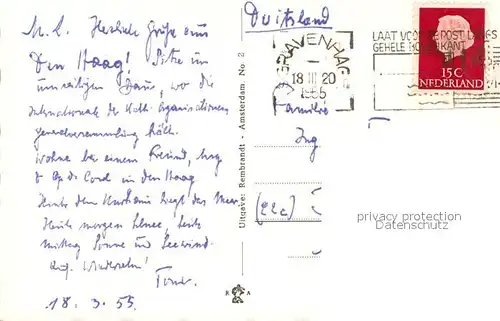 M. l. Herzliche Grüße aus
Den Haag! Sitze im
Haus, wo die
Internationale der Kath. Organisationen
Generalversammlung hält.
Wohne bei einem Freund,
in den Haag
Hinter dem Kurhaus liegt das Meer
Heute morgen Schnee, heute
mittag Sonne und Seewind.
Auf Wiedersehn!
18. 3. 55
Uitgave: Rembrandt - Amsterdam No. 2
R A
Duitsland
'S GRAVENHAGE
18 III 20
1955
LAAT VOOR DE POST LANGS
GEHELE KANT
15 C
NEDERLAND
Familie
Ing
(22c)
privacy protection
Datenschutz